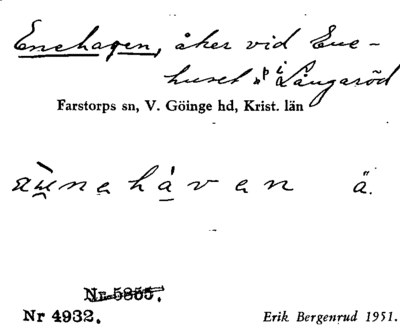 Enehagen, åker vid Ene-
huset på Långaröd
Farstorps sn, V. Göinge hd, Krist. län
hávan ä.
Nr 5855.
Nr 4932. Erik Bergenrud 1951.